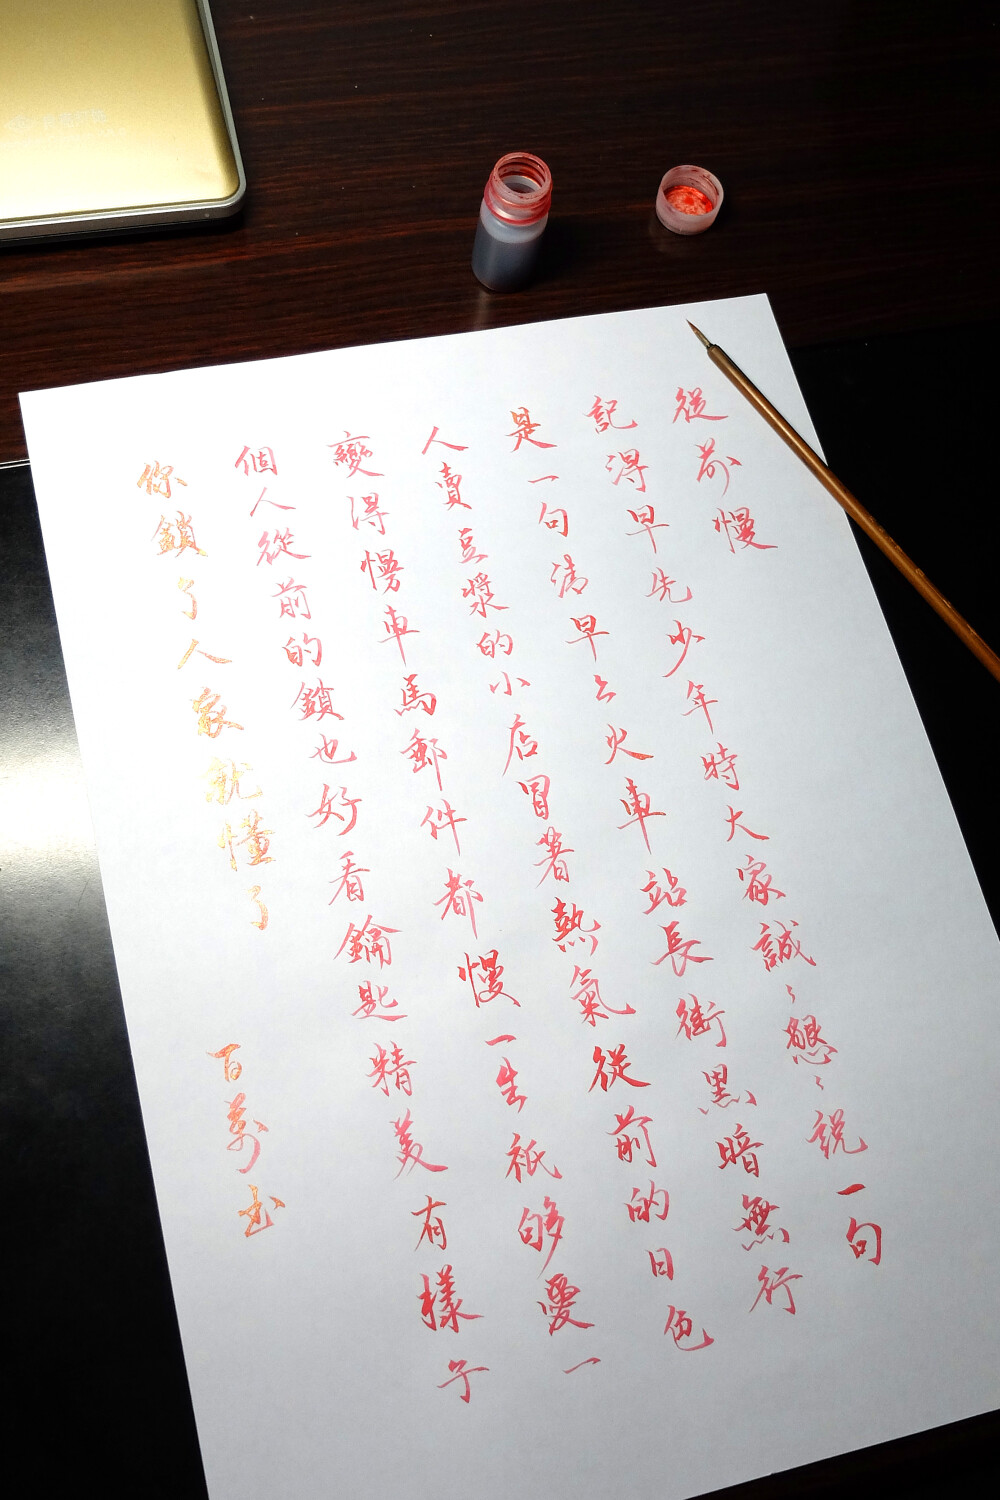 從前慢
記得早先少年時大家誠〻懇〻說一句
是一句清早上火車站長街黑暗無行
人賣豆漿的小店冒著熱氣從前的日色
變得慢車馬郵件都慢一生祇夠愛一
個人從前的鎖也好看鑰匙精美有樣子
你鎖了人家就懂了
百萬書